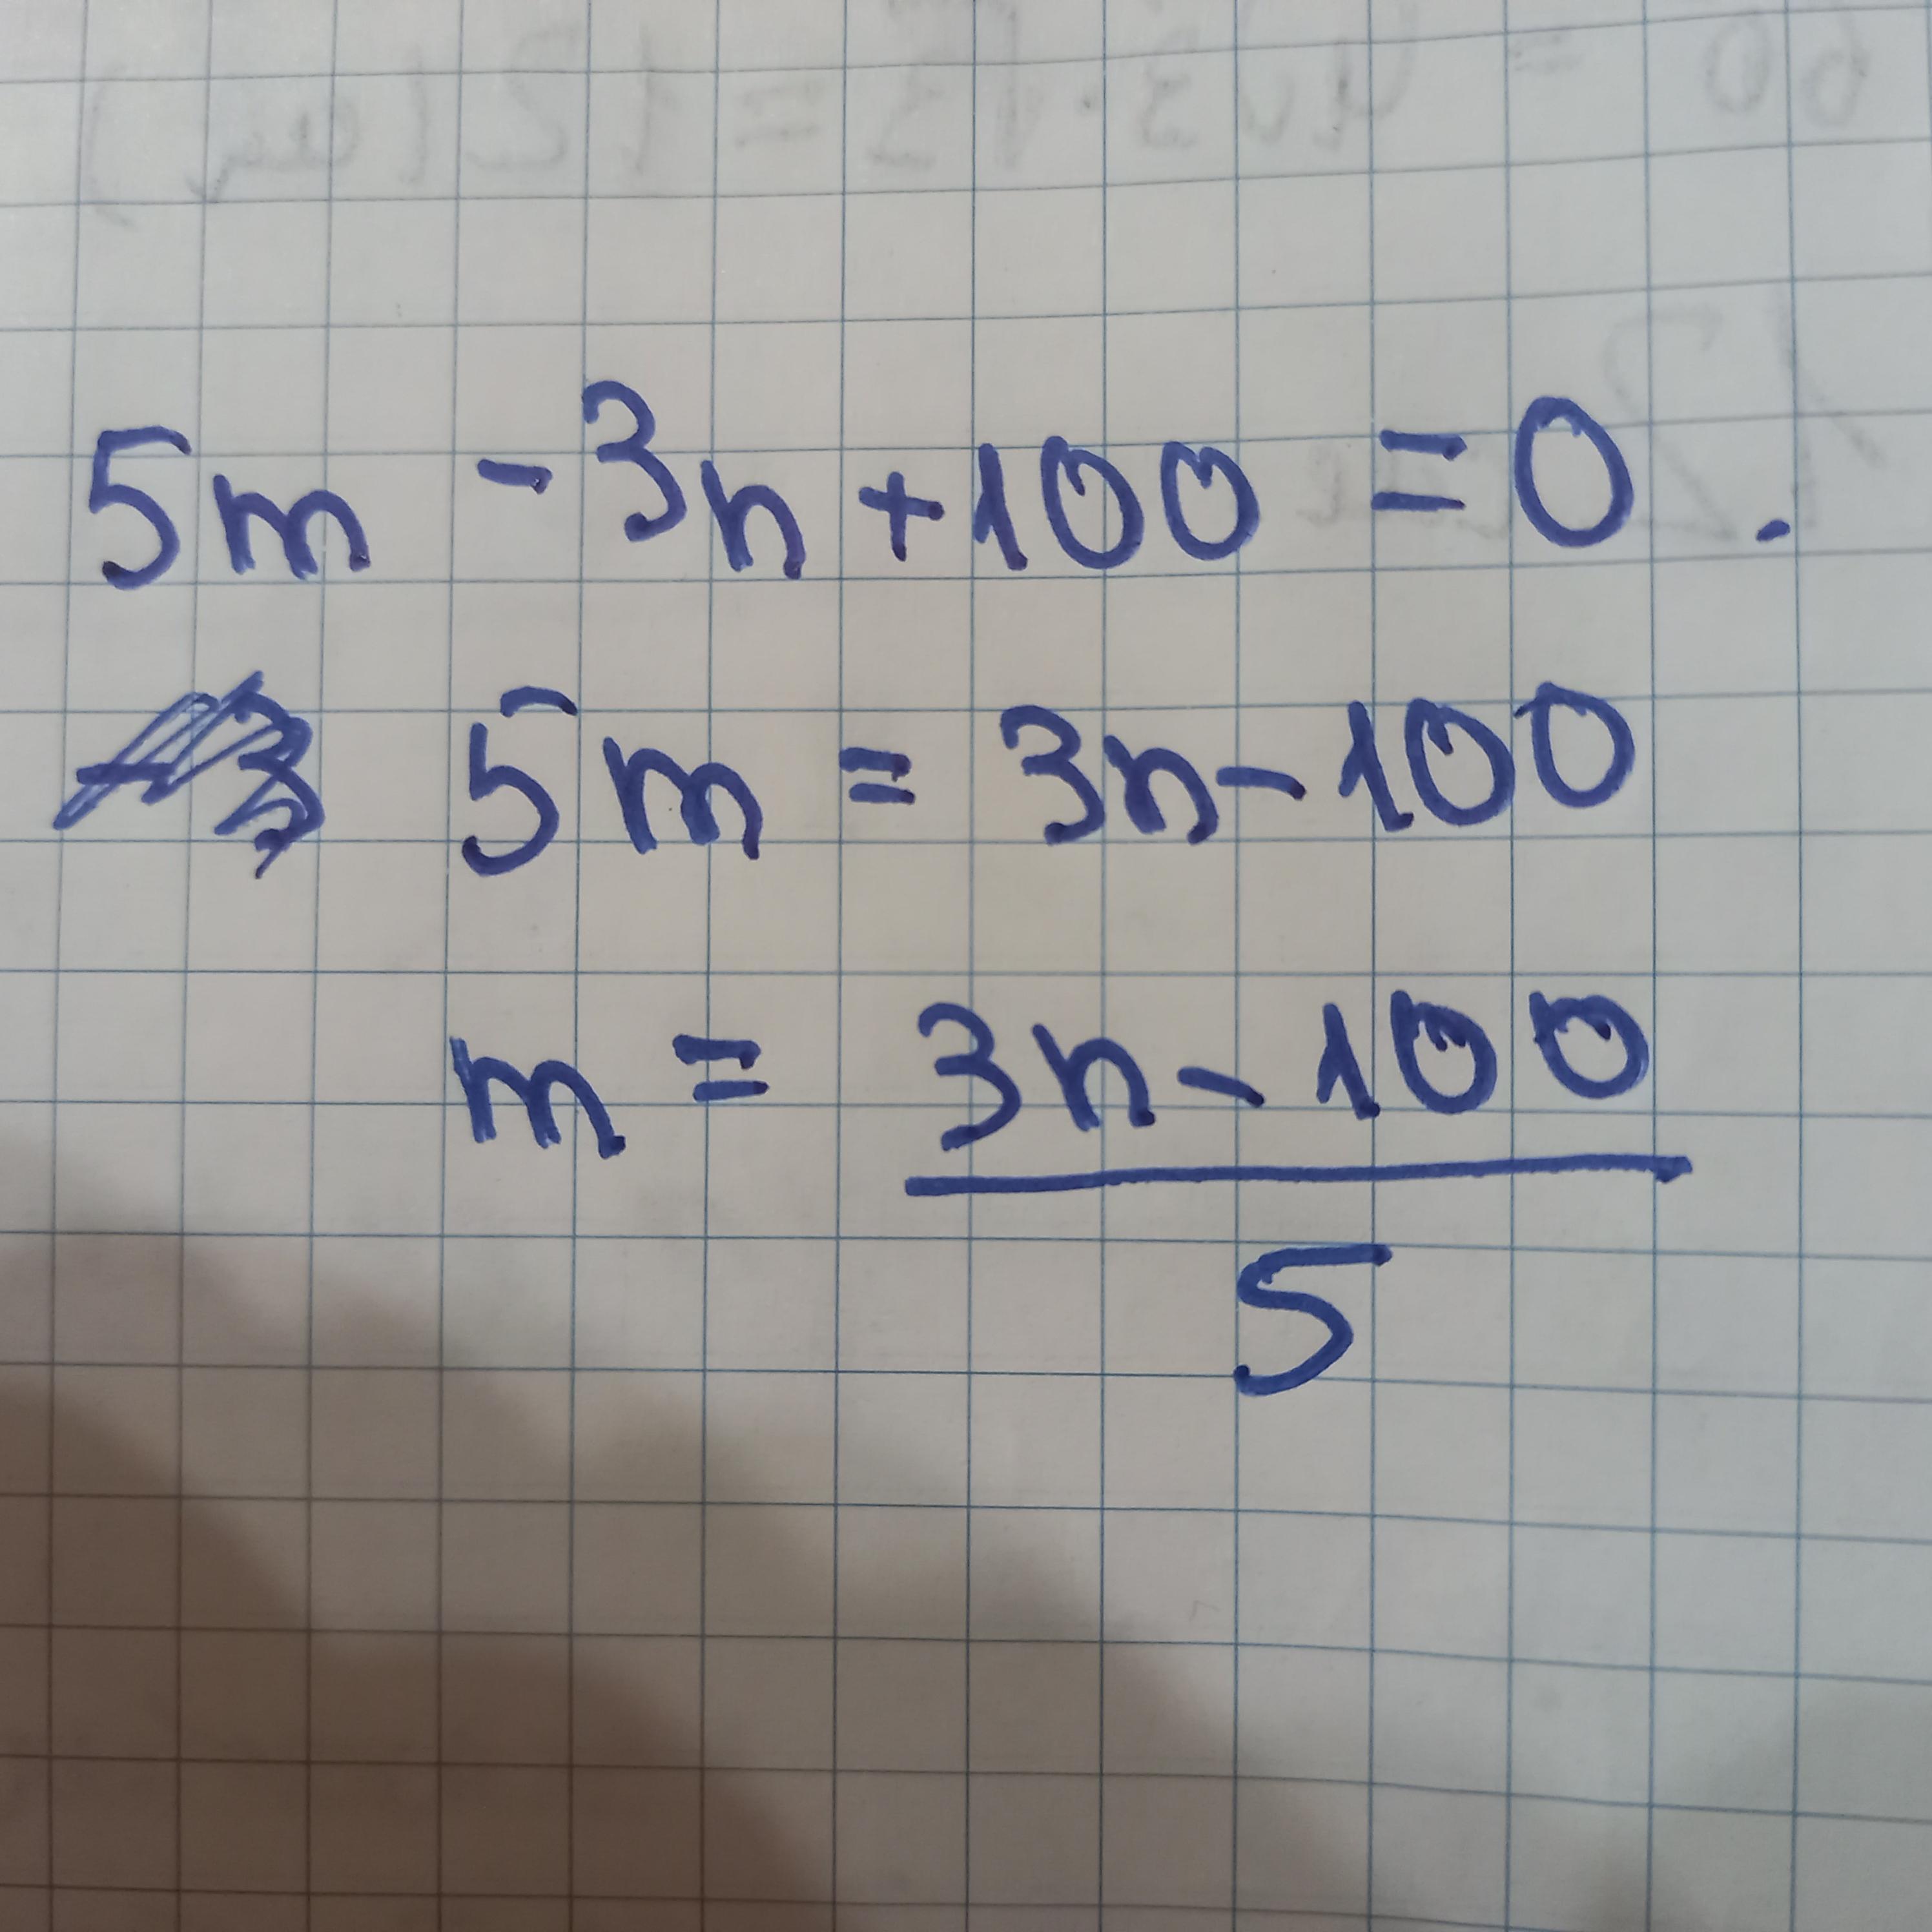 5m - 3n + 100 = 0.
5m = 3n - 100
m = 3n - 100
5